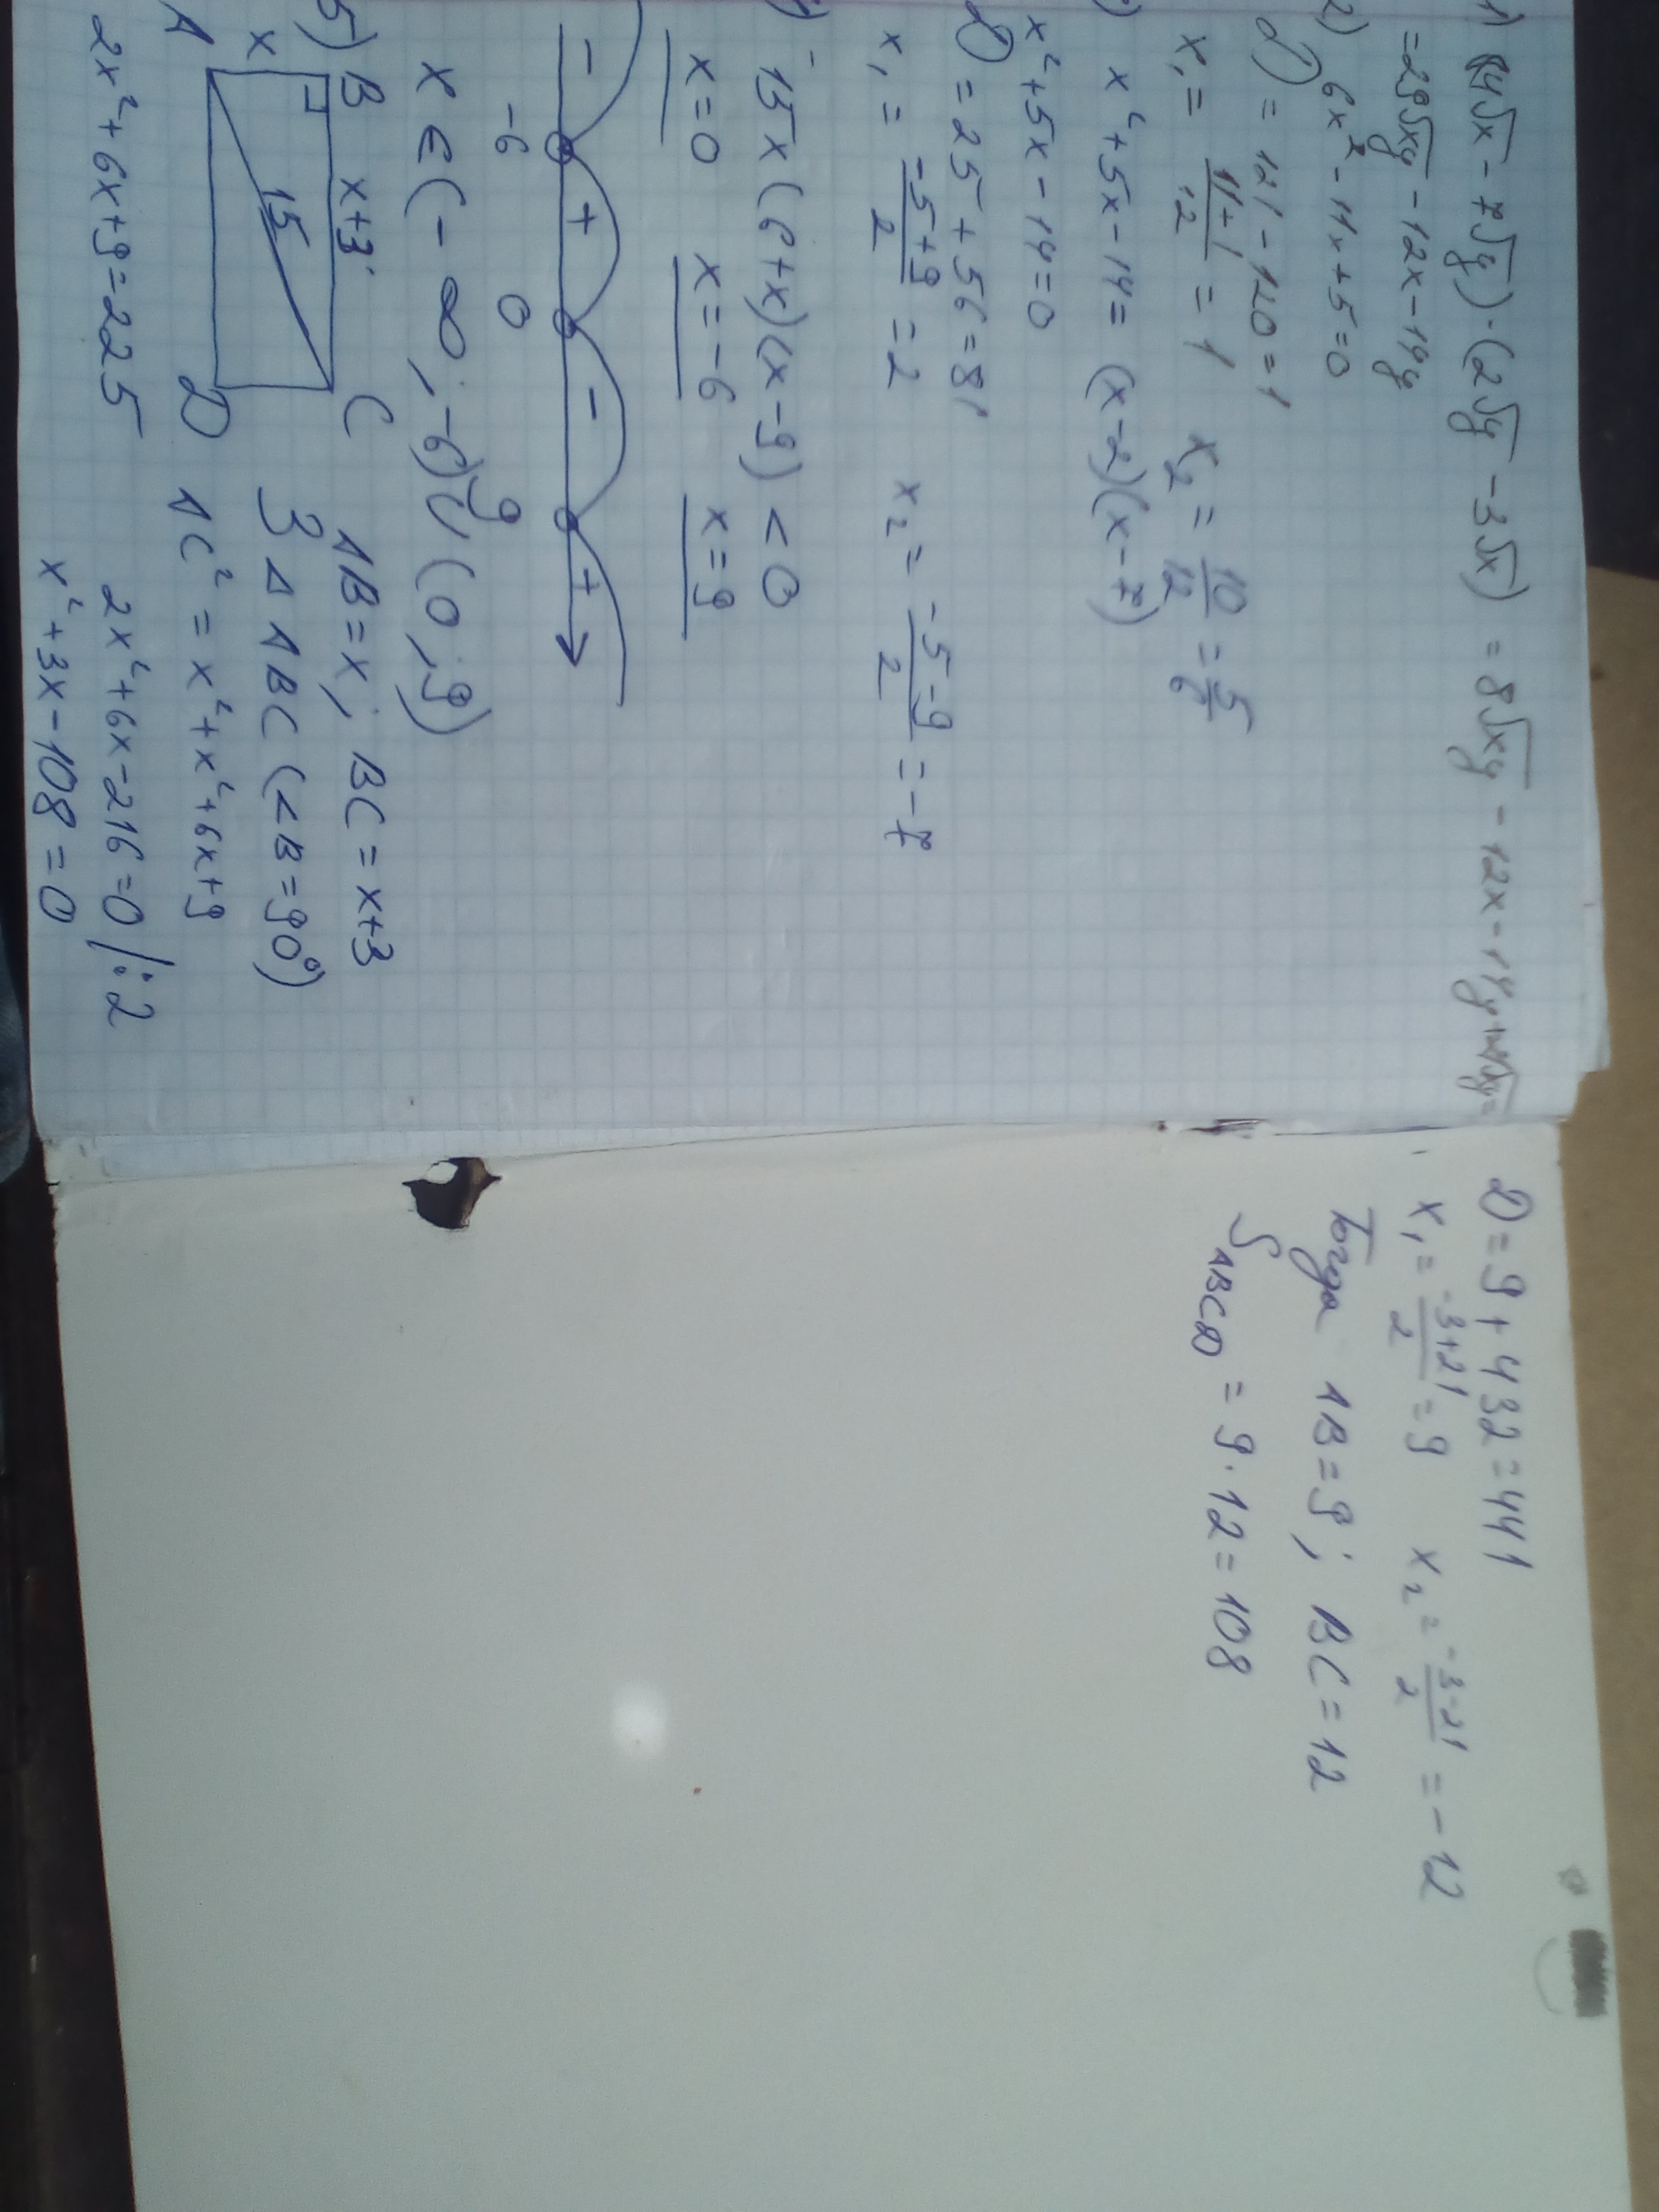 1) (4√x - 7√y)·(2√y - 3√x) = 8√xy - 12x - 14y +
= 29√xy - 12x - 14y
2) 6x² - 11x + 5 = 0
D = 121 - 120 = 1
x₁ = (11+1)/12 = 1 x₂ = 10/12 = 5/6
) x² + 5x - 14 = (x-2)(x-7)
x² + 5x - 14 = 0
D = 25 + 56 = 81
x₁ = (-5+9)/2 = 2 x₂ = (-5-9)/2 = -7
) 15x(6+x)(x-9) < 0
x = 0 x = -6 x = 9
- + - +
-6 0 9
x ∈ (-∞; -6) ∪ (0; 9)
5) B x+3 C AB = x; BC = x+3
x 15 З Δ ABC (<B = 90°)
A D AC² = x² + x² + 6x + 9
2x² + 6x + 9 = 225 2x² + 6x - 216 = 0 /:2
x² + 3x - 108 = 0
D = 9 + 432 = 441
x₁ = (-3+21)/2 = 9 x₂ = (-3-21)/2 = -12
Тогда AB = 9; BC = 12
S ABCD = 9·12 = 108